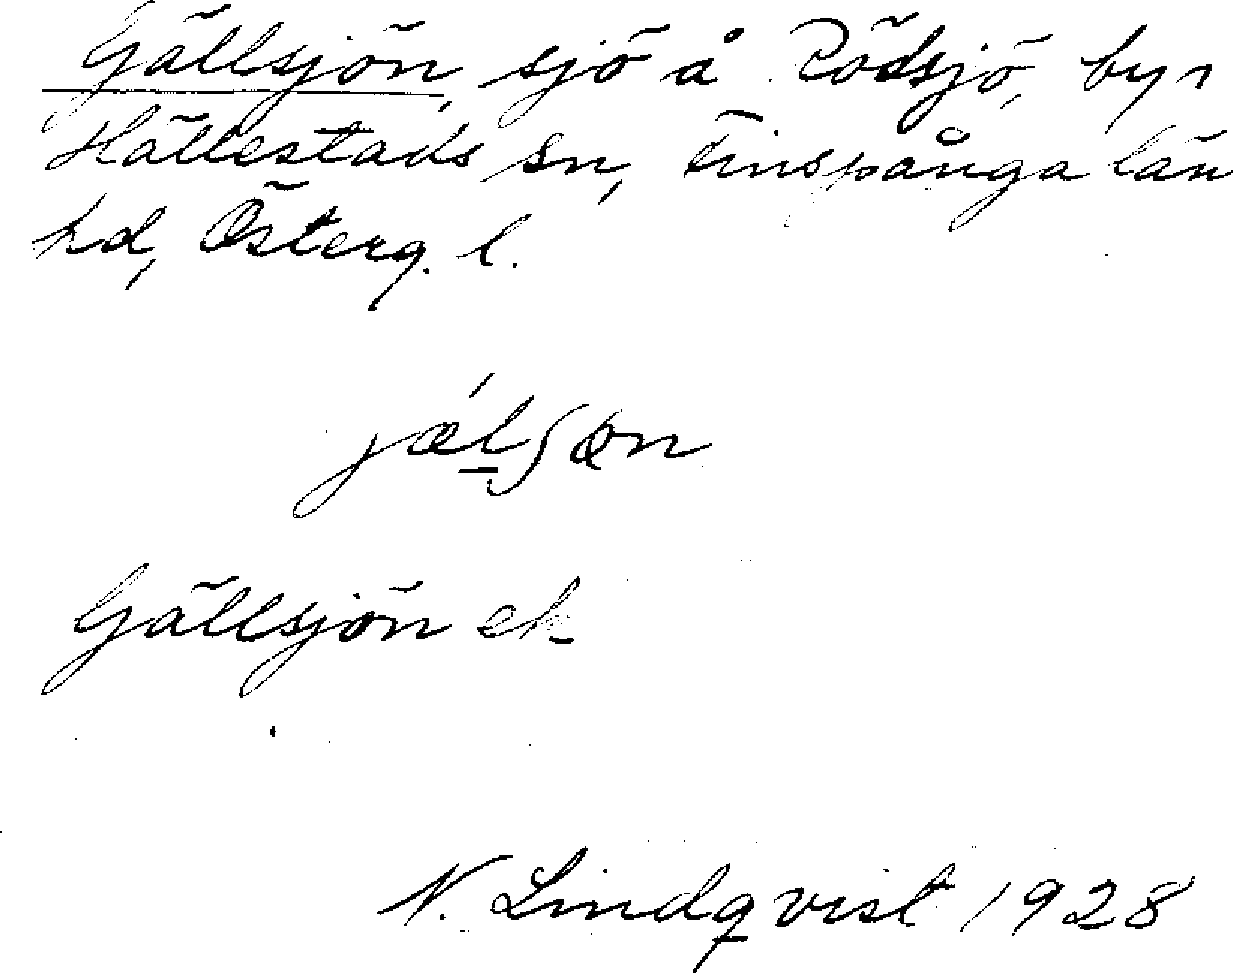 Gällsjön, sjö å Rödsjö, by,
Hällestads sn, Finspånga län
hd, Österg. l.
Gällsjön ek
N. Lindqvist 1928